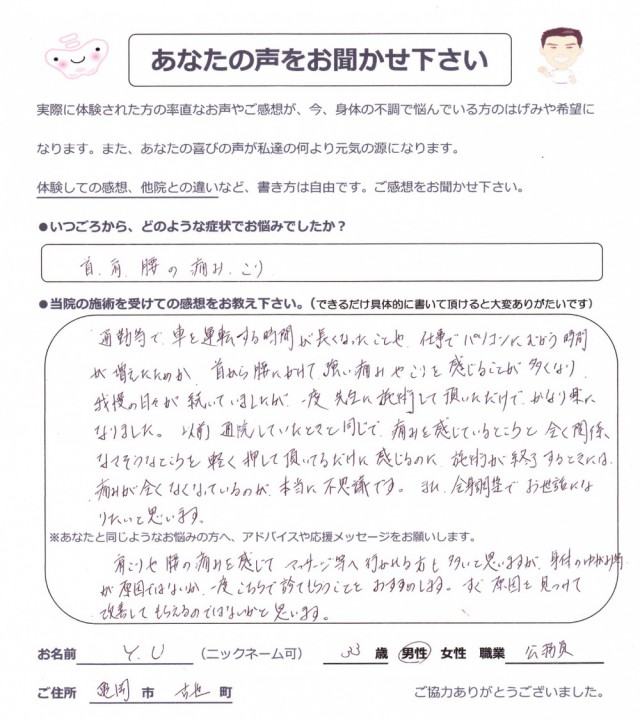 あなたの声をお聞かせ下さい
実際に体験された方の率直なお声やご感想が、今、身体の不調で悩んでいる方のはげみや希望に
なります。また、あなたの喜びの声が私達の何より元気の源になります。
体験しての感想、他院との違いなど、書き方は自由です。ご感想をお聞かせ下さい。
●いつごろから、どのような症状でお悩みでしたか？
首、肩、腰の痛み、こり
●当院の施術を受けての感想をお教え下さい。(できるだけ具体的に書いて頂けると大変ありがたいです)
通勤当で、車を運転する時間が長くなったことや、仕事でパソコンにむかう時間
が増えたためか、首から腰にかけて強い痛みやこりを感じることが多くなり、
我慢の日々が続いていましたが、一度先生に施術して頂いただけで、かなり楽に
なりました。以前通院していたときと同じで、痛みを感じているところと全く関係
なさそうなところを軽く押して頂いてるだけに感じるのに、施術が終了するときには、
痛みが全くなくなっているのが、本当に不思議です。又、全身調整でお世話にな
りたいと思います。
※あなたと同じようなお悩みの方へ、アドバイスや応援メッセージをお願いします。
肩こりや腰の痛みを感じて マッサージ等へ行かれる方も多いと思いますが、身体のゆがみ等
が原因ではないか、一度こちらで診てもらうことをおすすめします。すぐ原因を見つけて
改善してもらえるのではないかと思います。
お名前 Y.U (ニックネーム可) 33 歳 男性 女性 職業 公務員
ご住所 亀岡 市 古世 町 ご協力ありがとうございました。